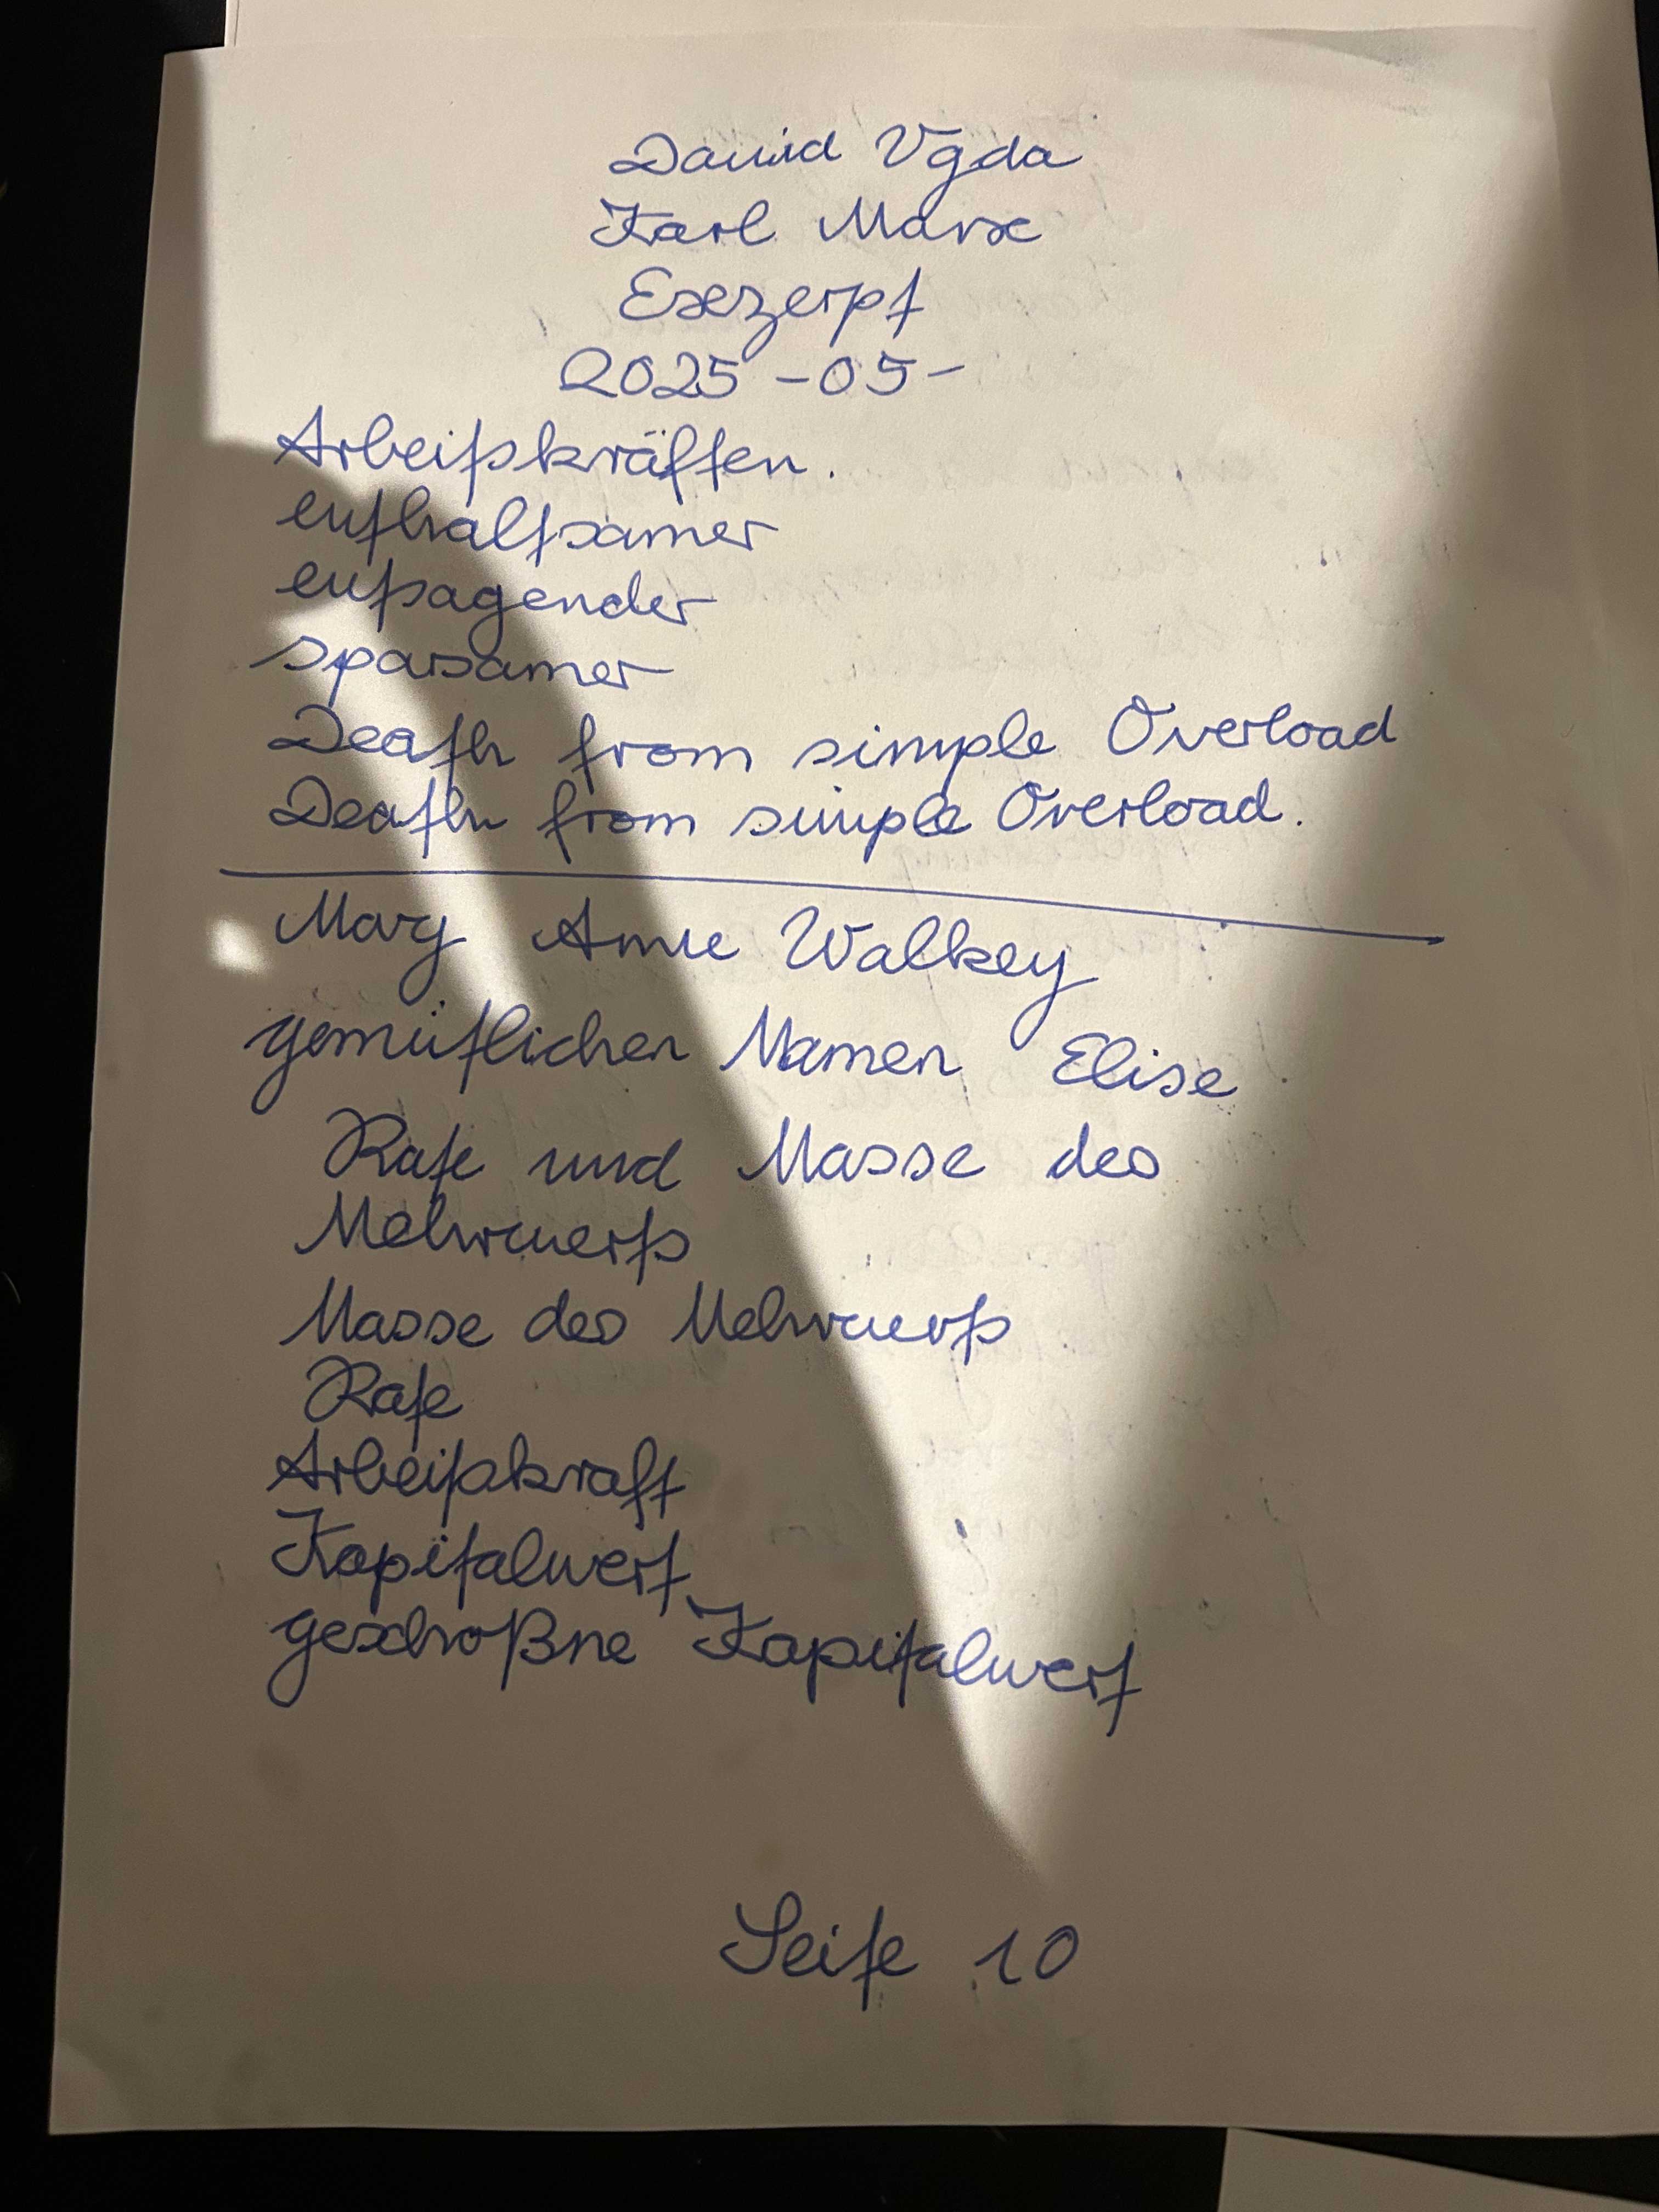 David Vgda
Karl Marx
Exzerpt
2025-05-
Arbeitskräften.
enthaltsamer
entsagender
sparsamer
Death from simple Overload
Death from simple Overload.
Mary Anne Walkey
gemütlichen Namen Elise
Rate und Masse des
Mehrwerts
Masse des Mehrwerts
Rate
Arbeitskraft
Kapitalwert
geschoßne Kapitalwert
Seite 10